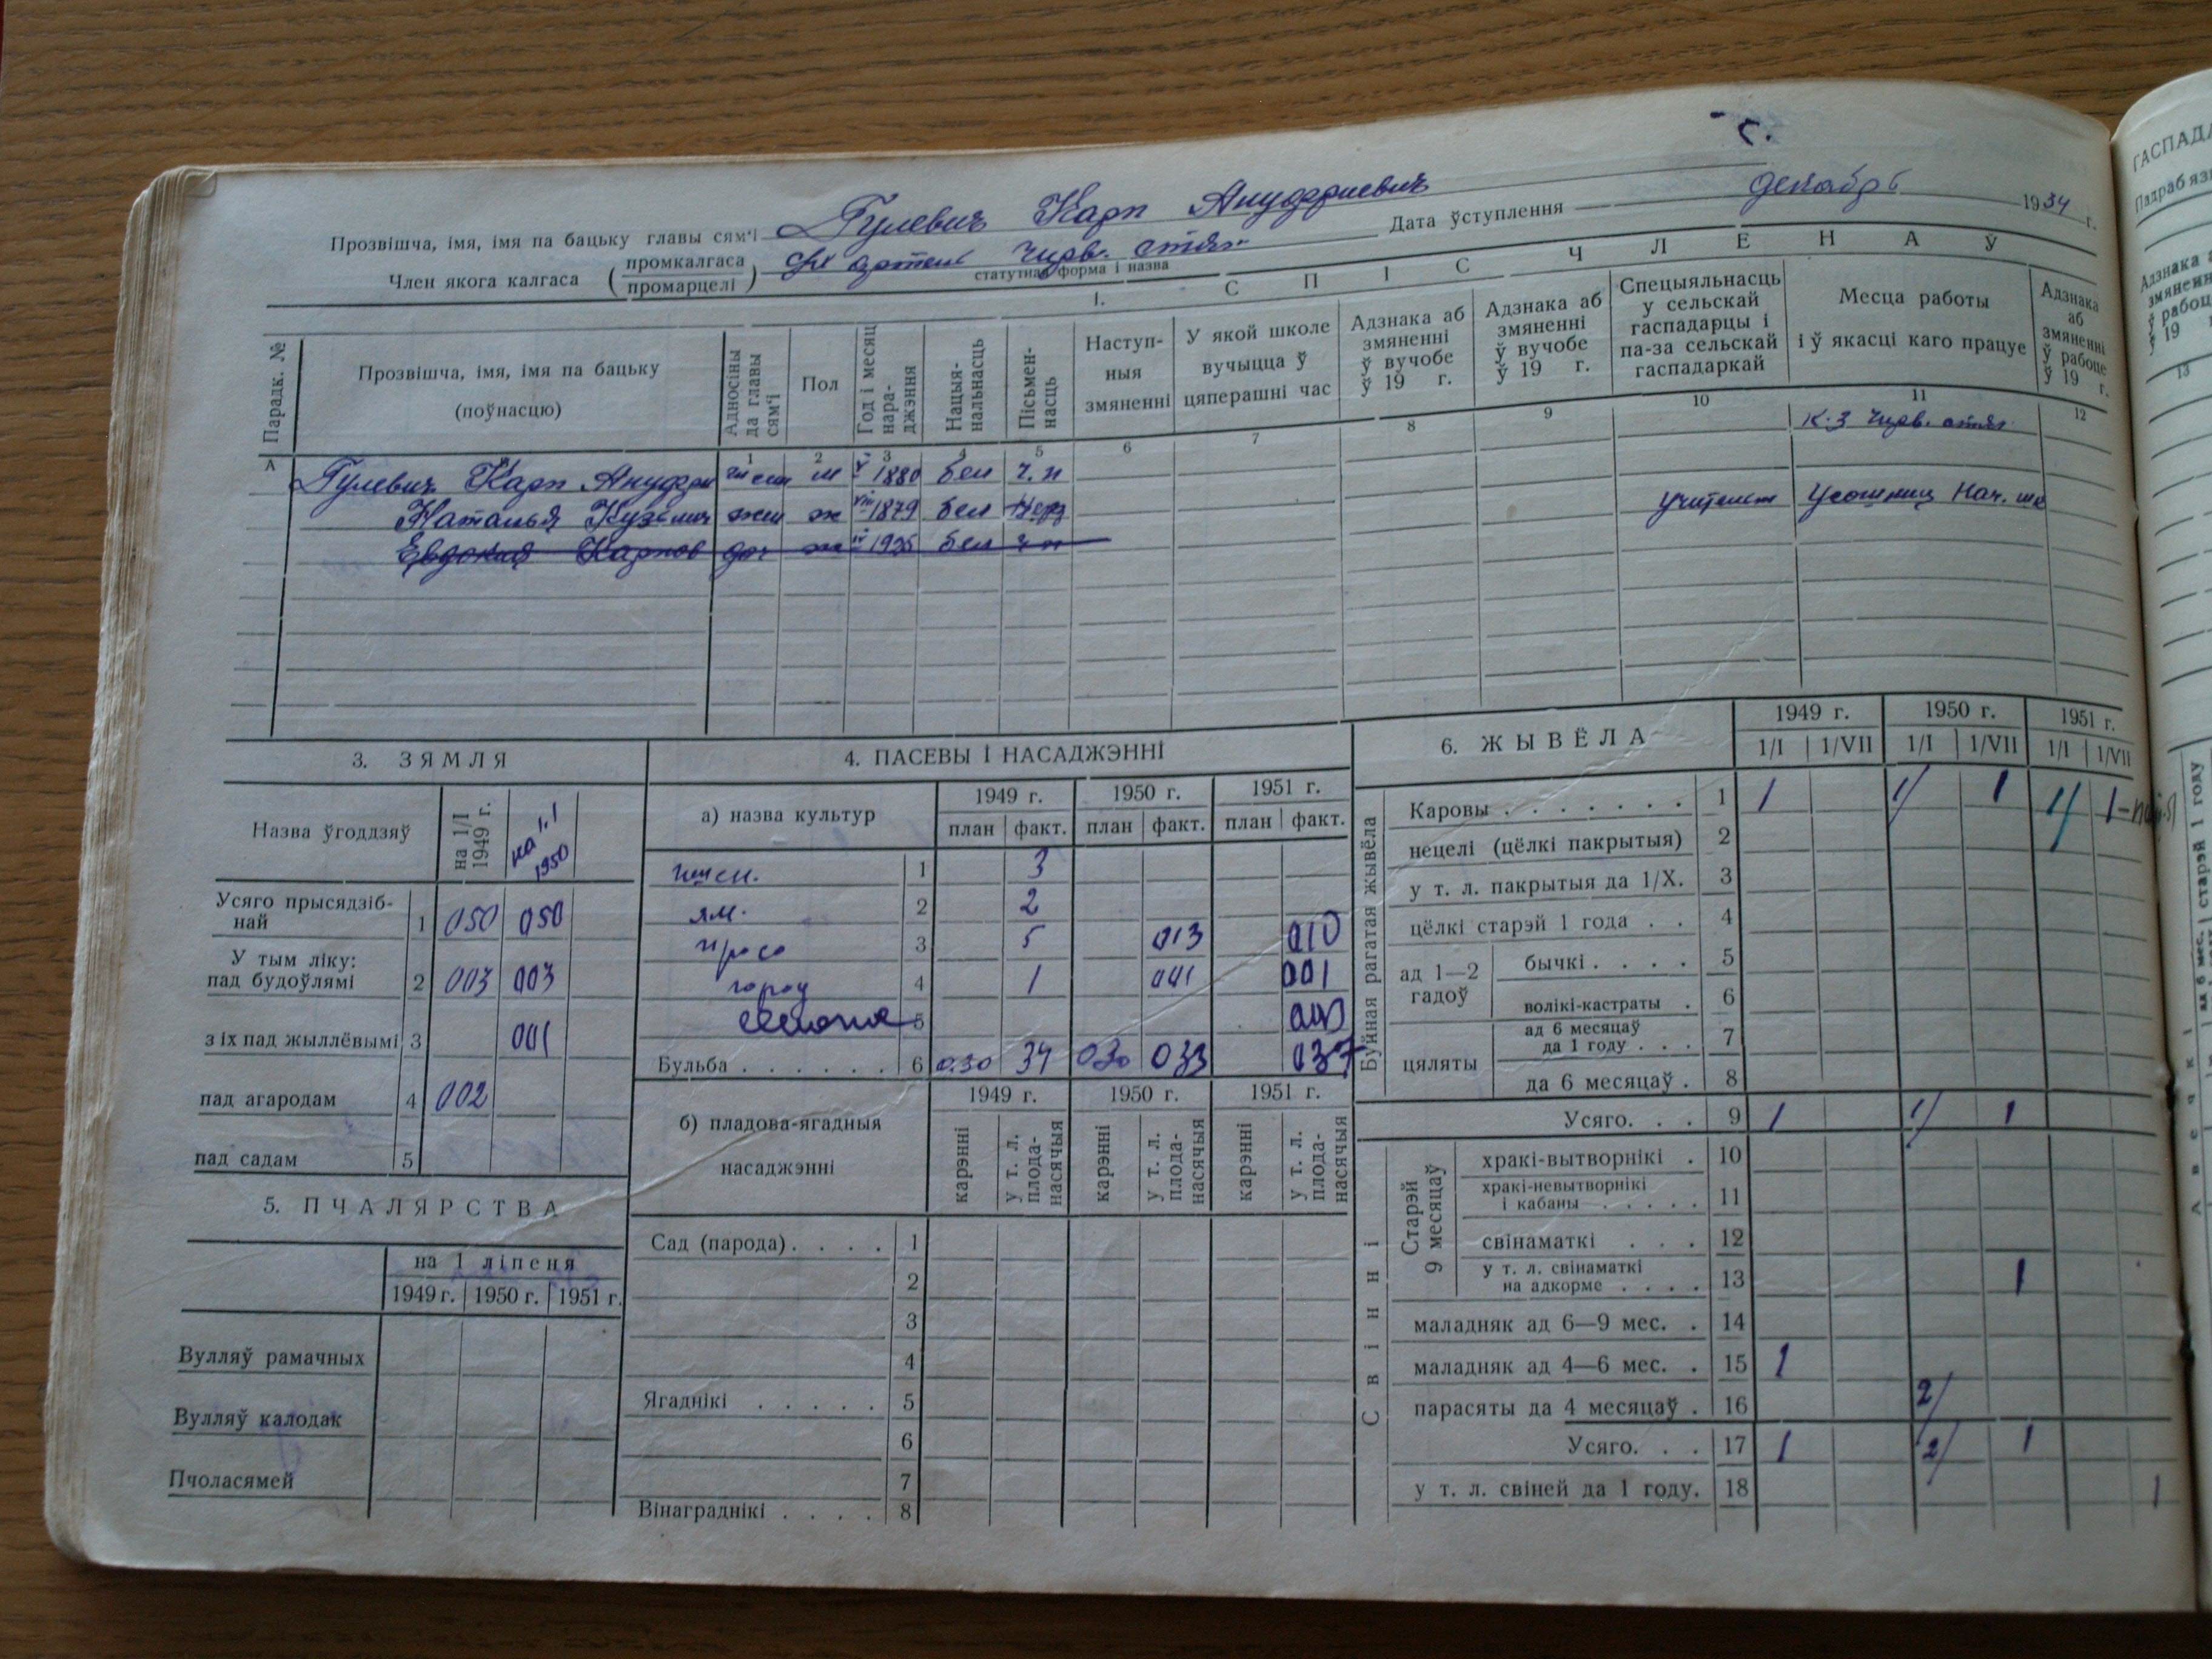 Прозвішча, імя, імя па бацьку главы сям'і Гулевич Карп Ануфриевич Дата ўступлення декабрь 1934 г.
Член якога калгаса (промкалгаса промарцелі) с/х артель Чирв. статутная форма і назва
1. СПІС ЧЛЕНАЎ
Парадк. № Прозвішча, імя, імя па бацьку (поўнасцю) Адносіны да главы сям'і Пол Год і месяц нараджэння Нацыянальнасць Пісьменнасць Наступныя змяненні У якой школе вучыцца ў цяперашні час Адзнака аб змяненні ў вучобе ў 19 г. Адзнака аб змяненні ў вучобе ў 19 г. Спецыяльнасць у сельскай гаспадарцы і па-за сельскай гаспадаркай Месца работы і ў якасці каго працуе Адзнака аб змяненні ў рабоце ў 19 г.
А 1 2 3 4 5 6 7 8 9 10 11 12
Гулевич Карп Ануфри м V 1880 бел ч.п К-з Чирв.
Наталья Кузьмин жен ж VIII 1879 бел негр
Евдокия Карпов доч ж 1925 бел ч п учитель Нач. шк
3. ЗЯМЛЯ
Назва ўгоддзяў на 1/I 1949 г. на 1.1 1950
Усяго прысядзібнай 1 050 050
У тым ліку: пад будоўлямі 2 003 003
з іх пад жыллёвымі 3 001
пад агародам 4 002
пад садам 5
5. ПЧАЛЯРСТВА
на 1 ліпеня
1949 г. 1950 г. 1951 г.
Вулляў рамачных
Вулляў калодак
Пчоласямей
4. ПАСЕВЫ І НАСАДЖЭННІ
а) назва культур 1949 г. 1950 г. 1951 г.
план факт. план факт. план факт.
пшен. 1 3
ям. 2 2
просо 3 5 013 010
город 4 1 001 001
5
Бульба 6 0.30 34 030 033 037
б) пладова-ягадныя насаджэнні 1949 г. 1950 г. 1951 г.
карэнні у т. л. плоданасячыя карэнні у т. л. плоданасячыя карэнні у т. л. плоданасячыя
Сад (парода) 1
2
3
4
Ягаднікі 5
6
7
Вінаграднікі 8
6. ЖЫВЁЛА 1949 г. 1950 г. 1951 г.
1/I 1/VII 1/I 1/VII 1/I 1/VII
Буйная рагатая жывёла
Каровы 1 1 1/ 1 1/ 1
нецелі (цёлкі пакрытыя) 2
у т. л. пакрытыя да 1/X. 3
цёлкі старэй 1 года 4
ад 1—2 гадоў бычкі 5
волікі-кастраты 6
цяляты ад 6 месяцаў да 1 году 7
да 6 месяцаў 8
Усяго 9 1 1/ 1
Свінні
Старэй 9 месяцаў
хракі-вытворнікі 10
хракі-невытворнікі і кабаны 11
свінаматкі 12
у т. л. свінаматкі на адкорме 13 1
маладняк ад 6—9 мес. 14
маладняк ад 4—6 мес. 15 1
парасяты да 4 месяцаў 16 2/
Усяго 17 1 2/ 1
у т. л. свіней да 1 году. 18 1